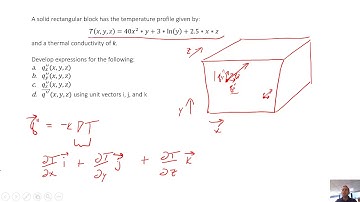 A solid rectangular block has the temperature profile given by:
T(x, y, z) = 40x² ∗ y + 3 ∗ ln(y) + 2.5 ∗ x ∗ z
and a thermal conductivity of k.
Develop expressions for the following:
a. q''ₓ(x, y, z)
b. q''ᵧ(x, y, z)
c. q''_z(x, y, z)
d. q''(x, y, z) using unit vectors i, j, and k
z
y
x
q'' = -k ∇T
∂T/∂x i + ∂T/∂y j + ∂T/∂z k